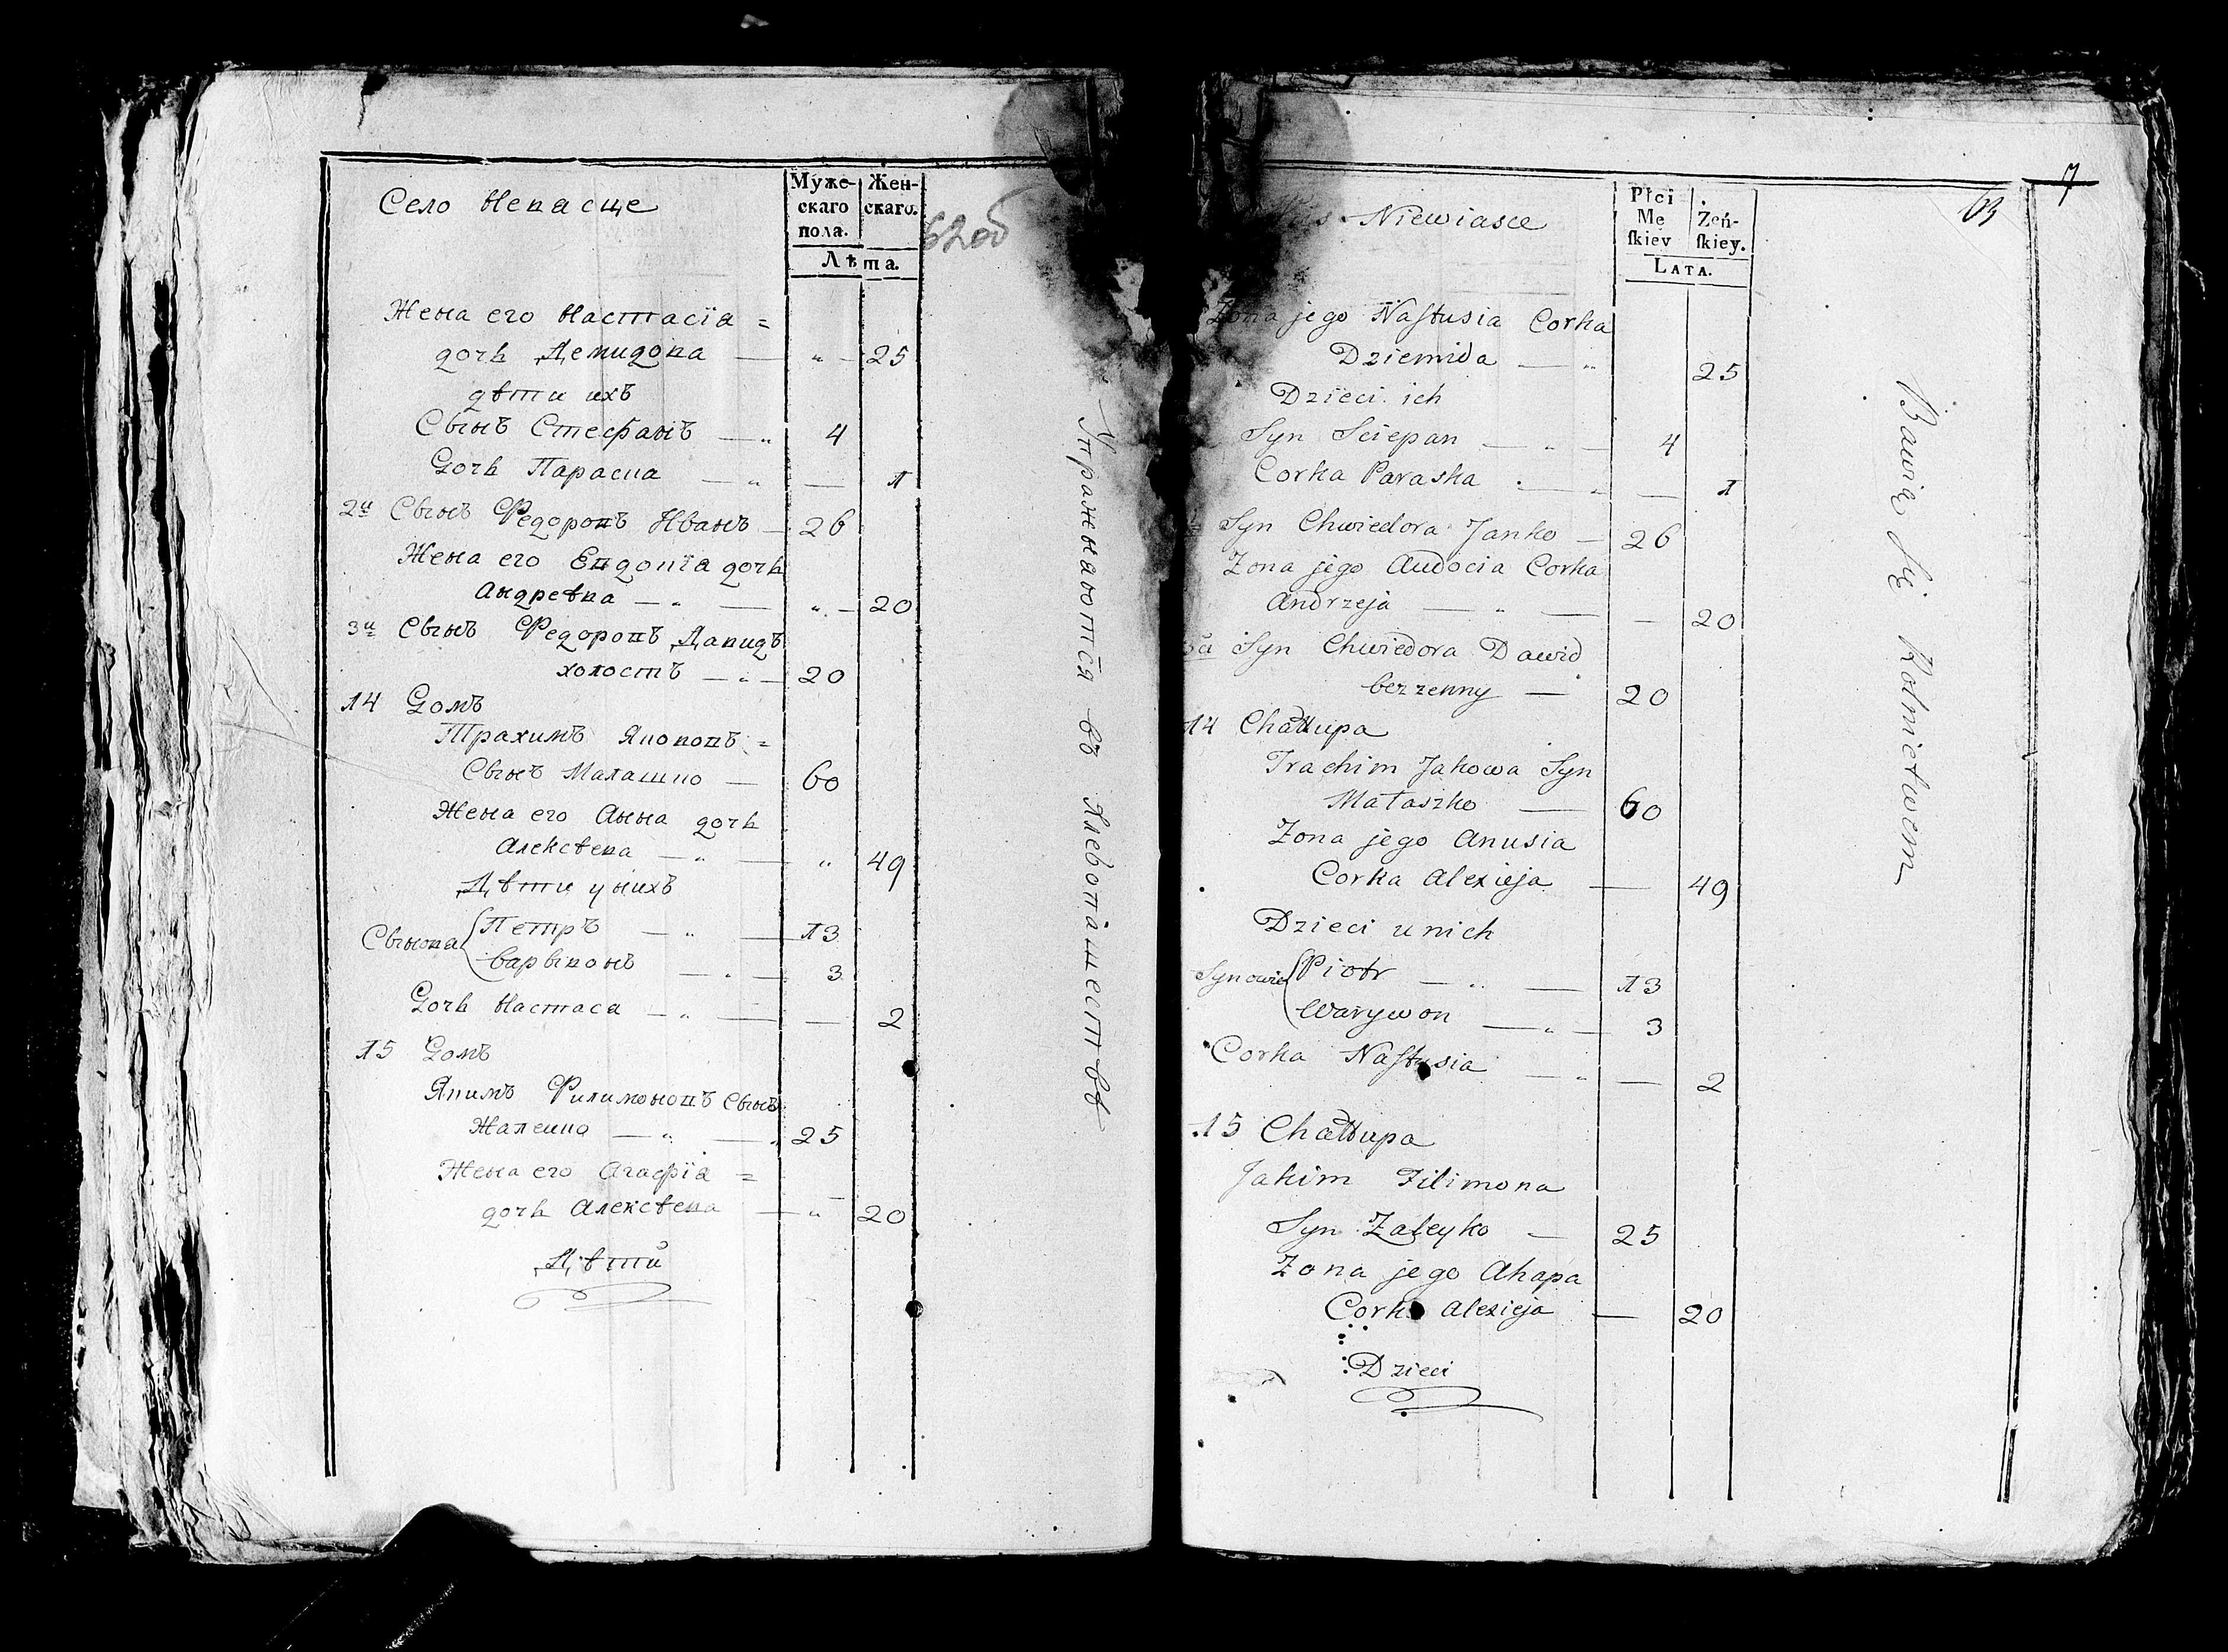 Село Невасце
Муже-
скаго
пола.
Жен-
скаго.
Лѣта.
62об
Жена его Настасїа =
дочь Демидова — „ — 25
дѣти ихъ
Сынъ Стефанъ — „ 4
Дочь Параска — „ — 1
2й Сынъ Федоровъ Иванъ — 26
Жена его Евдокїа дочь
Андреѣва — „ — „ — 20
3й Сынъ Федоровъ Давидъ
холостъ — „ — 20
14 Домъ
Трахимъ Якововъ =
Сынъ Малашко — 60
Жена его Анна дочь
Алексѣева — „ — „ 49
Дѣти у нихъ
Сынова Петръ — „ — 13
Варывонъ — „ — 3
Дочь Настаса — „ — — 2
15 Домъ
Якимъ Филимоновъ Сынъ
Жалейко — „ — „ 25
Жена его Агафїа =
дочь Алексѣева — „ 20
Дѣти
Упражнаются въ Хлебопашествѣ
Niewiasce
Płci
Mę
ſkiey
Żeń-
ſkiey.
LATA.
63
7
Zona jego Naſtusia Corka
Dziemida — „ 25
Dzieci ich
Syn Sciepan — „ — 4
Corka Paraska — „ — 1
Syn Chwiedora Janko — 26
Zona jego Audocia Corka
Andrzeja — „ — — 20
3a Syn Chwiedora Dawid
bezzenny — „ 20
14 Chałłupa
Trachim Jakowa Syn
Małaszko — 60
Zona jego Anusia
Corka Alexieja — 49
Dzieci u nich
Synowie Piotr — „ — 13
Warywon — „ — 3
Corka Naſtusia — „ — 2
15 Chałłupa
Jakim Filimona
Syn Zaleyko — 25
Zona jego Ahapa
Corka Alexieja — 20
Dzieci
Bawią Się Rolnictwem